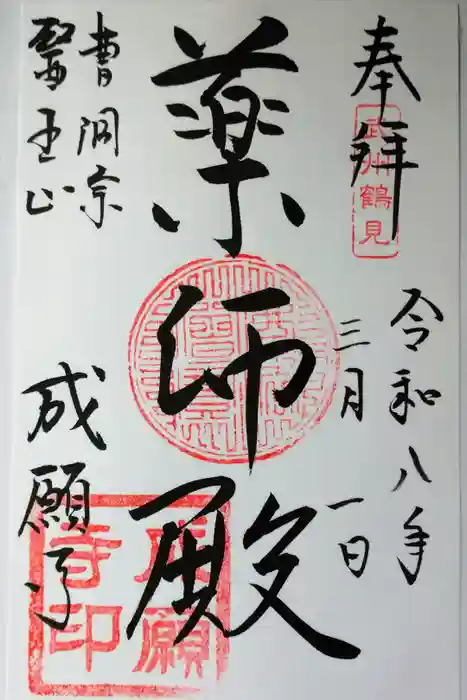 奉拜
武州鶴見
令和八年
三月一日
薬師殿
曹洞宗
醫王山
成願寺
成願寺印